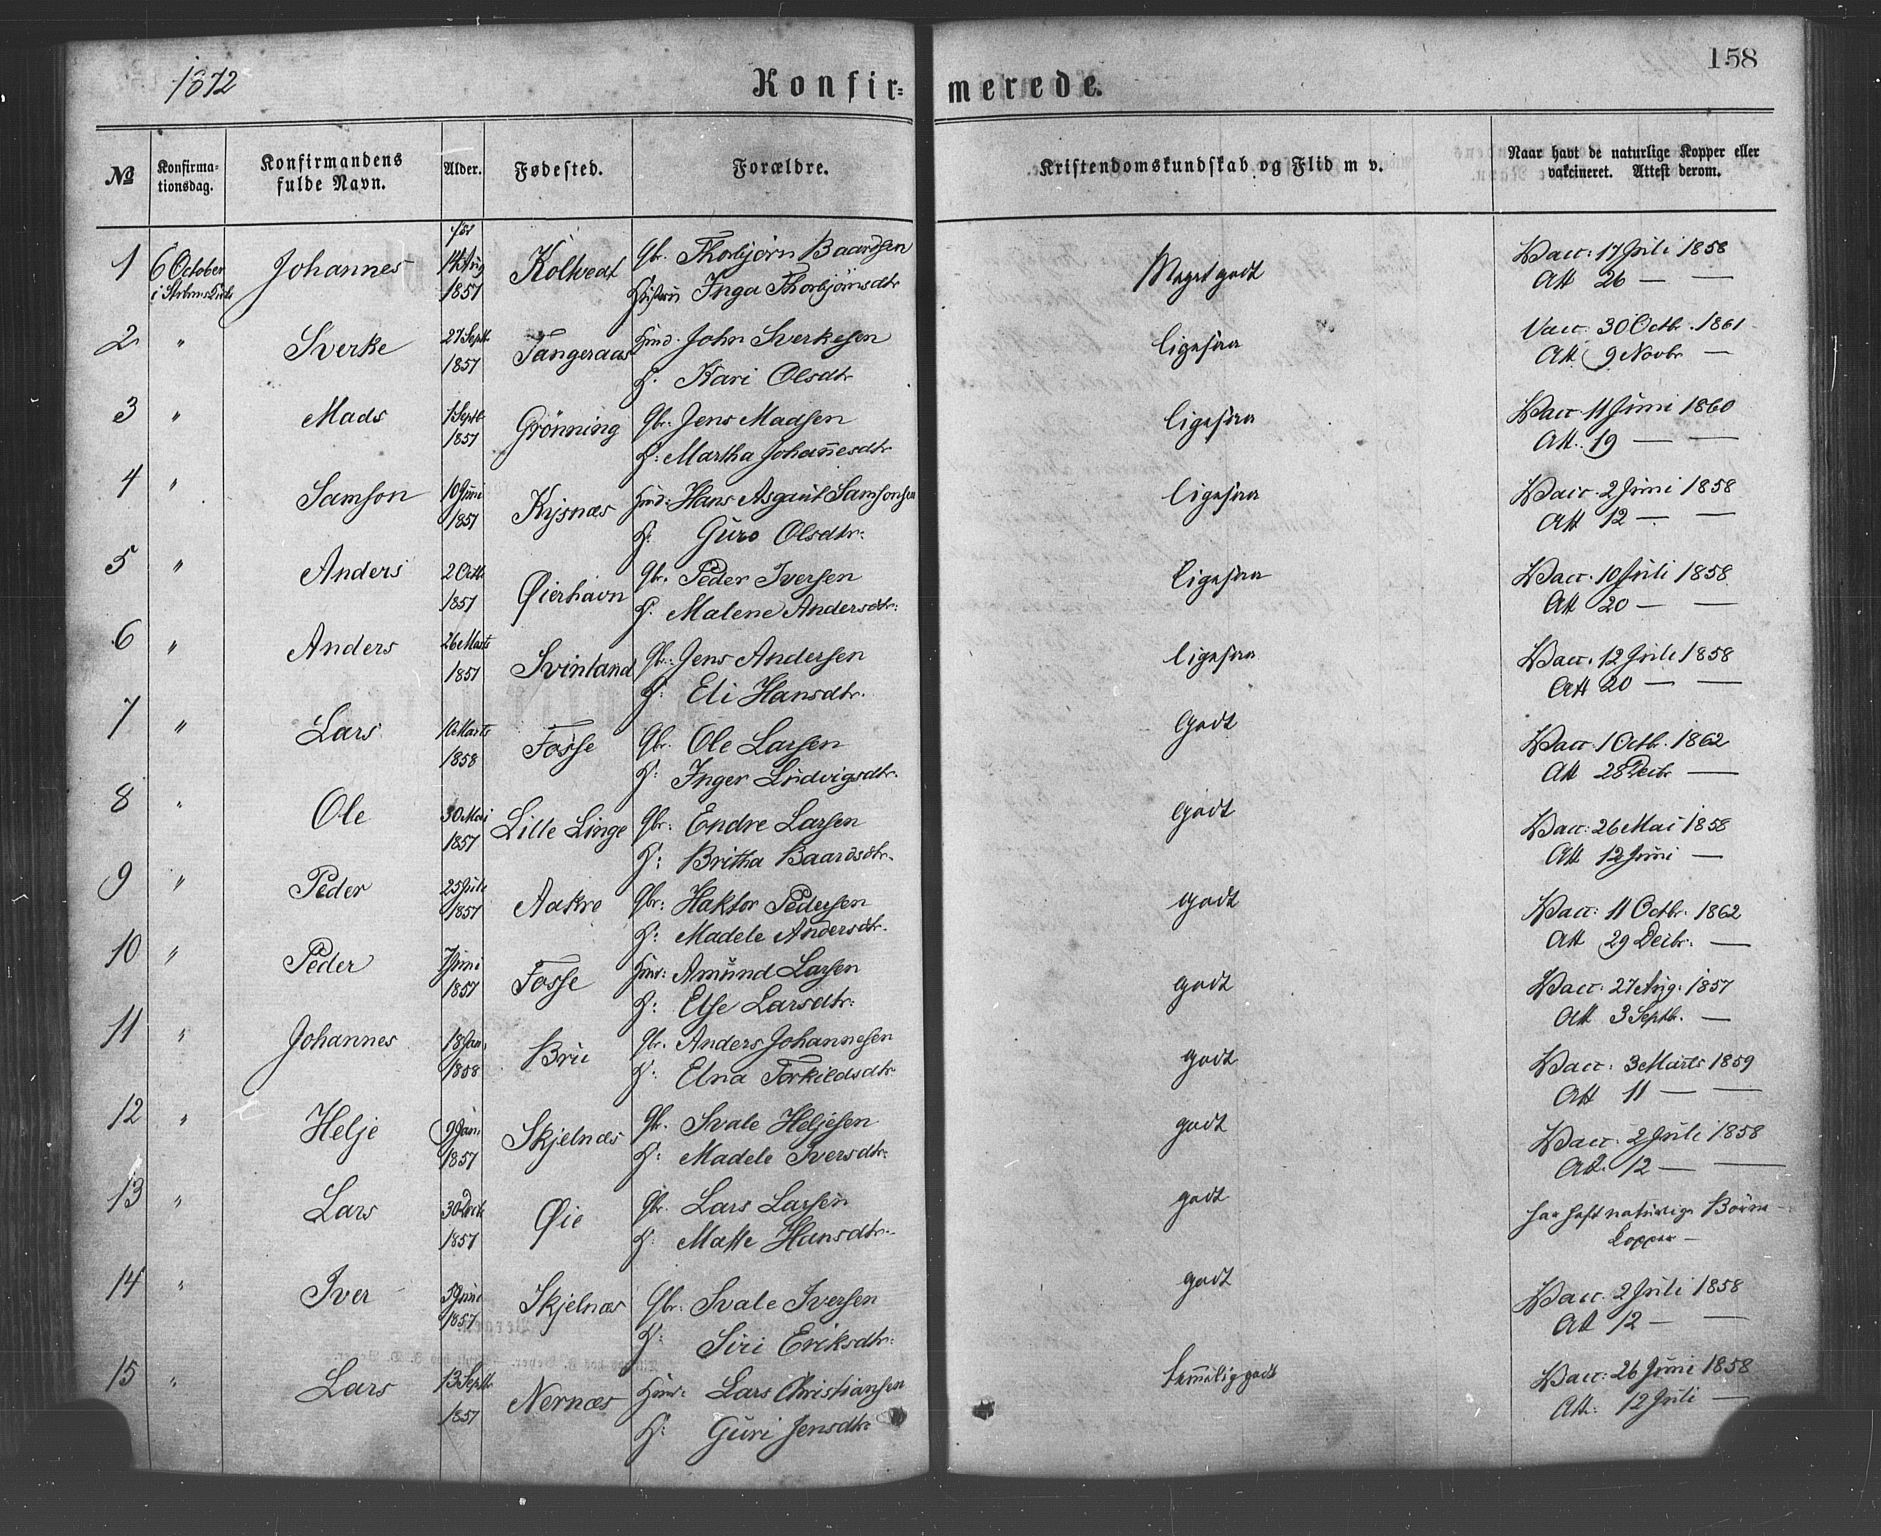 1872
Konfir=merede.
158
№ Konfirma-tionsdag. Konfirmandens fulde Navn. Alder. Fødested. Forældre. Kristendomskundskab og Flid m v. Naar havt de naturlige Kopper eller vakcineret. Attest derom.
1 6 October Johannes 14 Aug 1857 Koltvedt Gbr. Thorbjørn Baardsen Meget godt Vacc: 17 Juli 1858
Hustru Inga Thorbjørnsdtr Att 26 — —
2 " Sverke 27 Septb 1857 Tangeraas Huusmd. John Sverkesen ligesaa Vacc. 30 Octb. 1861
H. Kari Olsdtr Att 9 Novbr —
3 " Mads 1 Septb 1857 Grönning Gbr. Jens Madsen ligesaa Vacc. 11 Juni 1860
H: Martha Johannesdtr Att. 19 — —
4 " Samson 10 Juni 1857 Kysnæs Huusmd: Hans Asgaut Samsonsen ligesaa Vacc. 2 Juni 1858
H. Guro Olsdtr: Att 12 — —
5 " Anders 2 Octb 1857 Øierhavn Gbr. Peder Iversen ligesaa Vacc. 10 Juli 1858
H. Malene Andersdtr: Att 20 — —
6 " Anders 26 Marts 1857 Svinland Gbr. Jens Andersen ligesaa Vacc. 12 Juli 1858
H. Eli Hansdtr. Att 20 — —
7 " Lars Marts 1858 Fosse Gbr. Ole Larsen godt Vacc. 1 Octb. 1862
H. Inger Ludvigsdtr. Att 28 Decbr —
8 " Ole 30 Mai 1857 Lille Linge Gbr: Endre Larsen godt Vacc: 26 Mai 1858
H: Britha Baardsdtr. Att 12 Juni —
9 " Peder 25 Juli 1857 Aakre Gbr: Haktor Pedersen godt Vacc: 11 Octbr. 1862
H: Madele Andersdtr. Att 29 Decbr. —
10 " Peder 7 Juni 1857 Fosse Huusmd: Amund Larsen godt Vacc: 27 Aug: 1857
H: Else Larsdtr: Att 3 Septb. —
11 " Johannes 18 Jan. 1858 Brue Gbr. Anders Johannesen godt Vacc: 3 Marts 1859
H: Elna Torkildsdtr Att 11 — —
12 " Helje 9 1857 Skjelnæs Gbr. Svale Heljesen godt Vacc: 2 Juli 1858
H: Madele Iversdtr: Att. 12 — —
13 " Lars 30 1857 Øie Gbr. Lars Larsen godt har haft naturlige Börne-
H. Matte Hansdtr. kopper —
14 " Iver 5 Juni 1857 Skjelnæs Gbr: Svale Iversen godt Vacc. 2 Juli 1858
H: Siri Eriksdtr: Att 12 — —
15 " Lars 13 Septb 1857 Nernæs Huusmd: Lars Christiansen temmelig godt Vacc: 26 Juni 1858
H: Guri Jensdtr Att: 12 Juli —